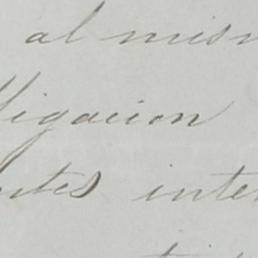 al mism
ligacion
ntes inte